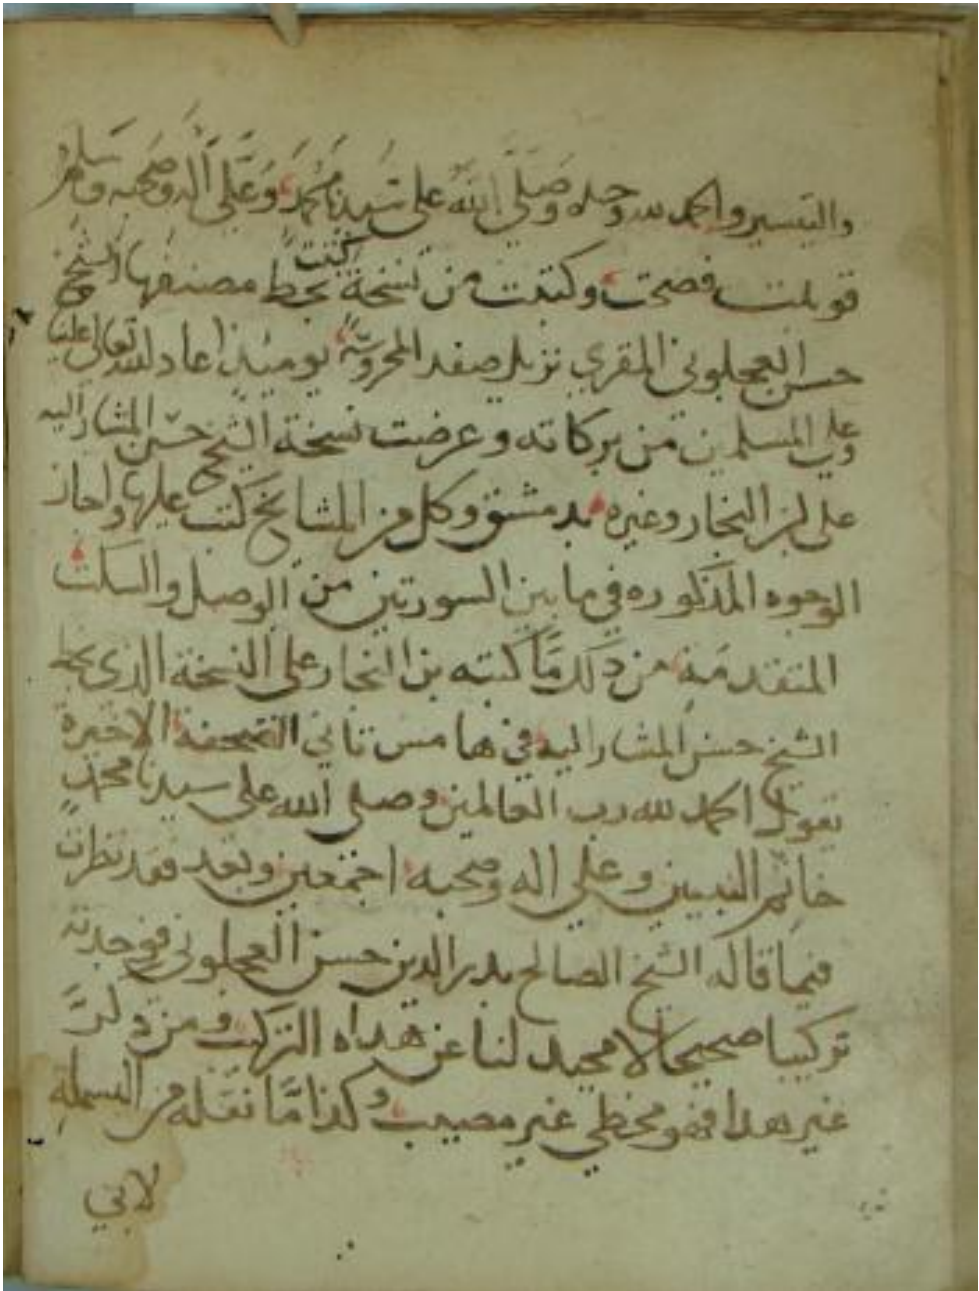 والتيسير والحمد لله وحده وصلى الله على سيدنا محمد وعلى اله وصحبه وسلم
قوبلت فصحت وكتبت من نسخة كتبت بخط مصنفها الشيخ
حسن العجلوني المقري نزيل صفد المحروسة يوميذ اعاد الله تعالى علينا
وعلى المسلمين من بركاته وعرضت نسخة الشيخ حسن المشار اليه
على بن النجار وغيره بدمشق وكل من المشايخ كتب عليها واجاز
الوجوه المذكوره في ما بين السورتين من الوصل والسكت
المتقدمة من ذلك ما كتبه بن النجار على النسخة الذي بخط
الشيخ حسن المشار اليه في هامش تاني الصحفة الاخيرة
يقول الحمد لله رب العالمين وصلى الله على سيدنا محمد
خاتم النبيين وعلى اله وصحبه اجمعين وبعد فقد نظرت
فيما قاله الشيخ الصالح بدر الدين حسن العجلوني فوجدته
تركيبا صحيحا لا محيد لنا عن هداه التركيب ومن
غير هدا فهو مخطي غير مصيب وكذا ما نقله من البسملة
لابي